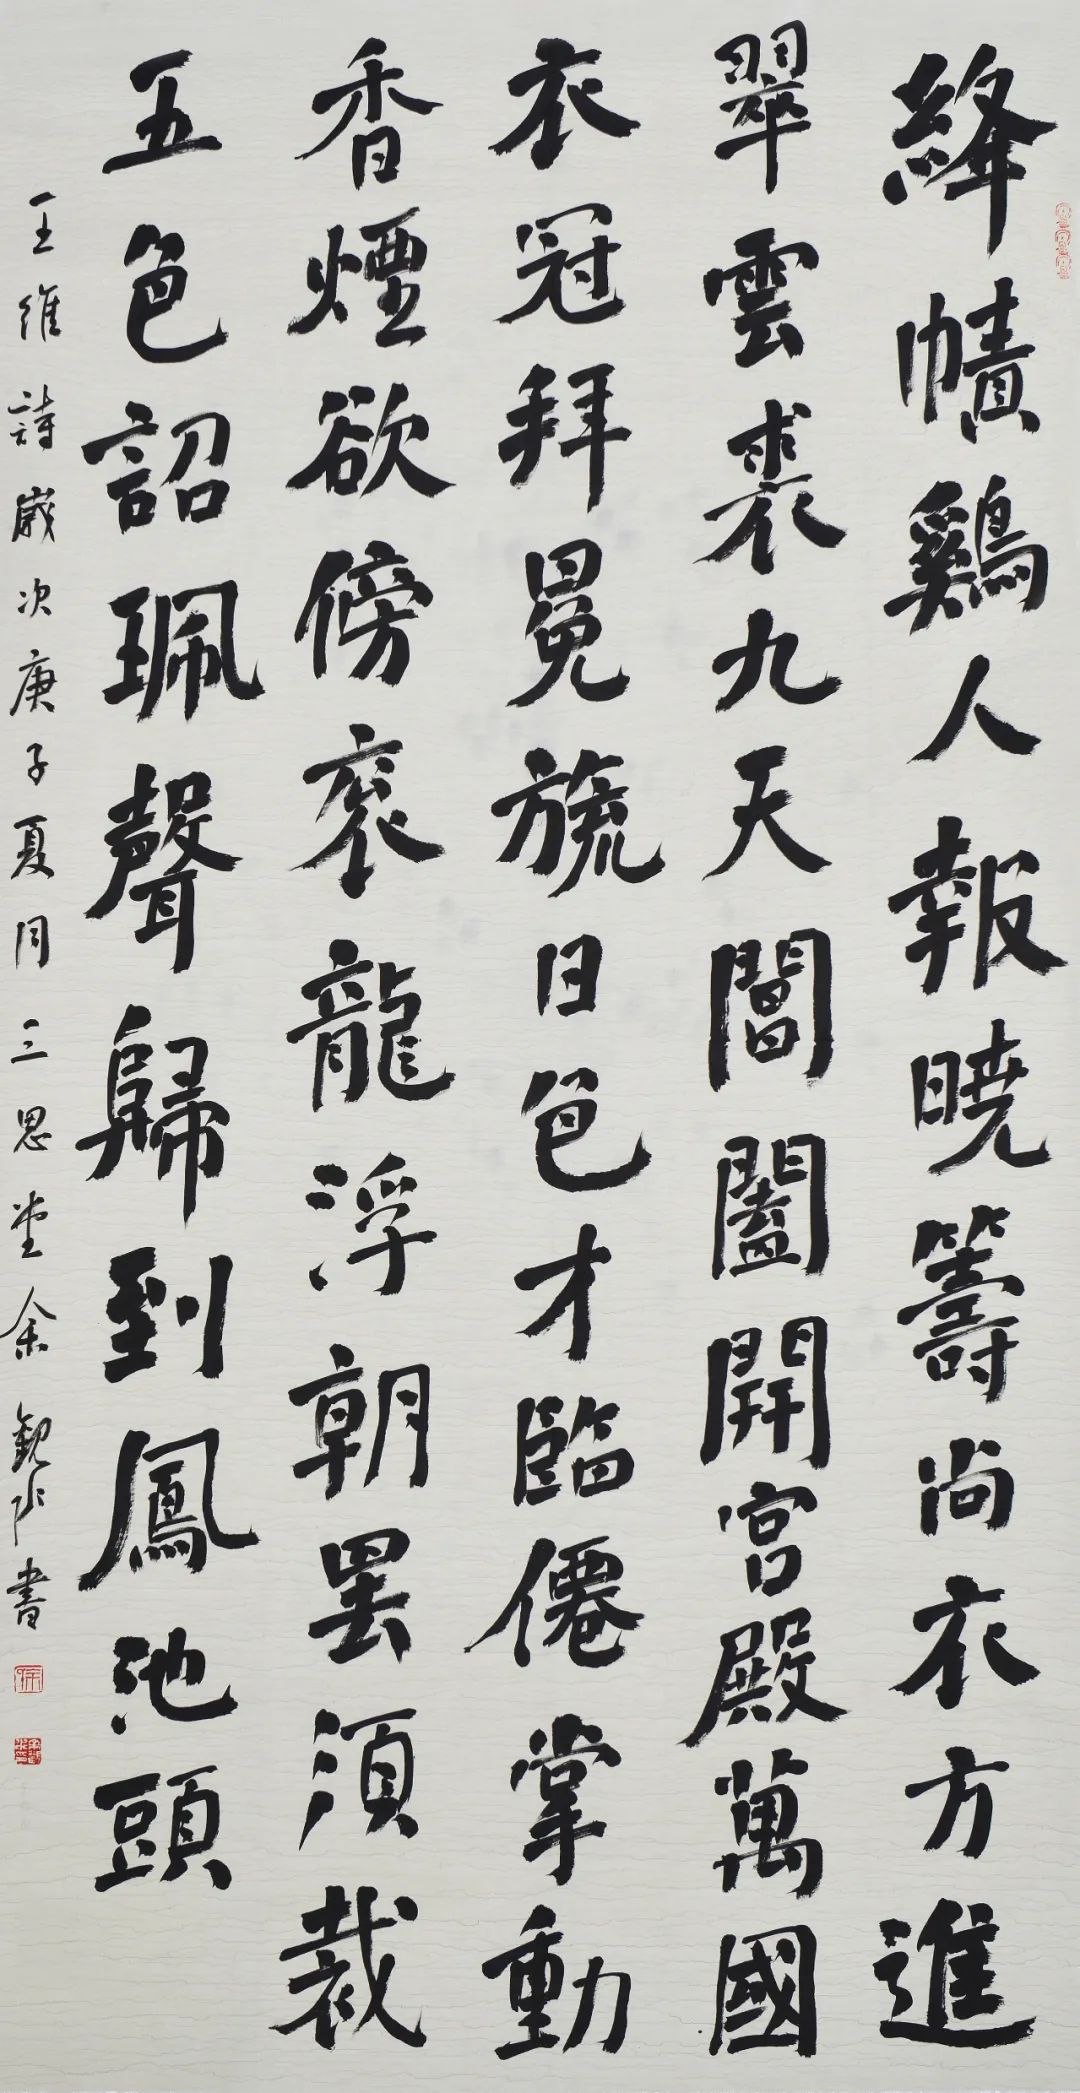 絳幘鷄人報曉籌尚衣方進
翠雲裘九天閶闔開宮殿萬國
衣冠拜冕旒日色才臨僊掌動
香煙欲傍袞龍浮朝罷須裁
五色詔珮聲歸到鳳池頭
王維詩歲次庚子夏月三思堂余觀水書